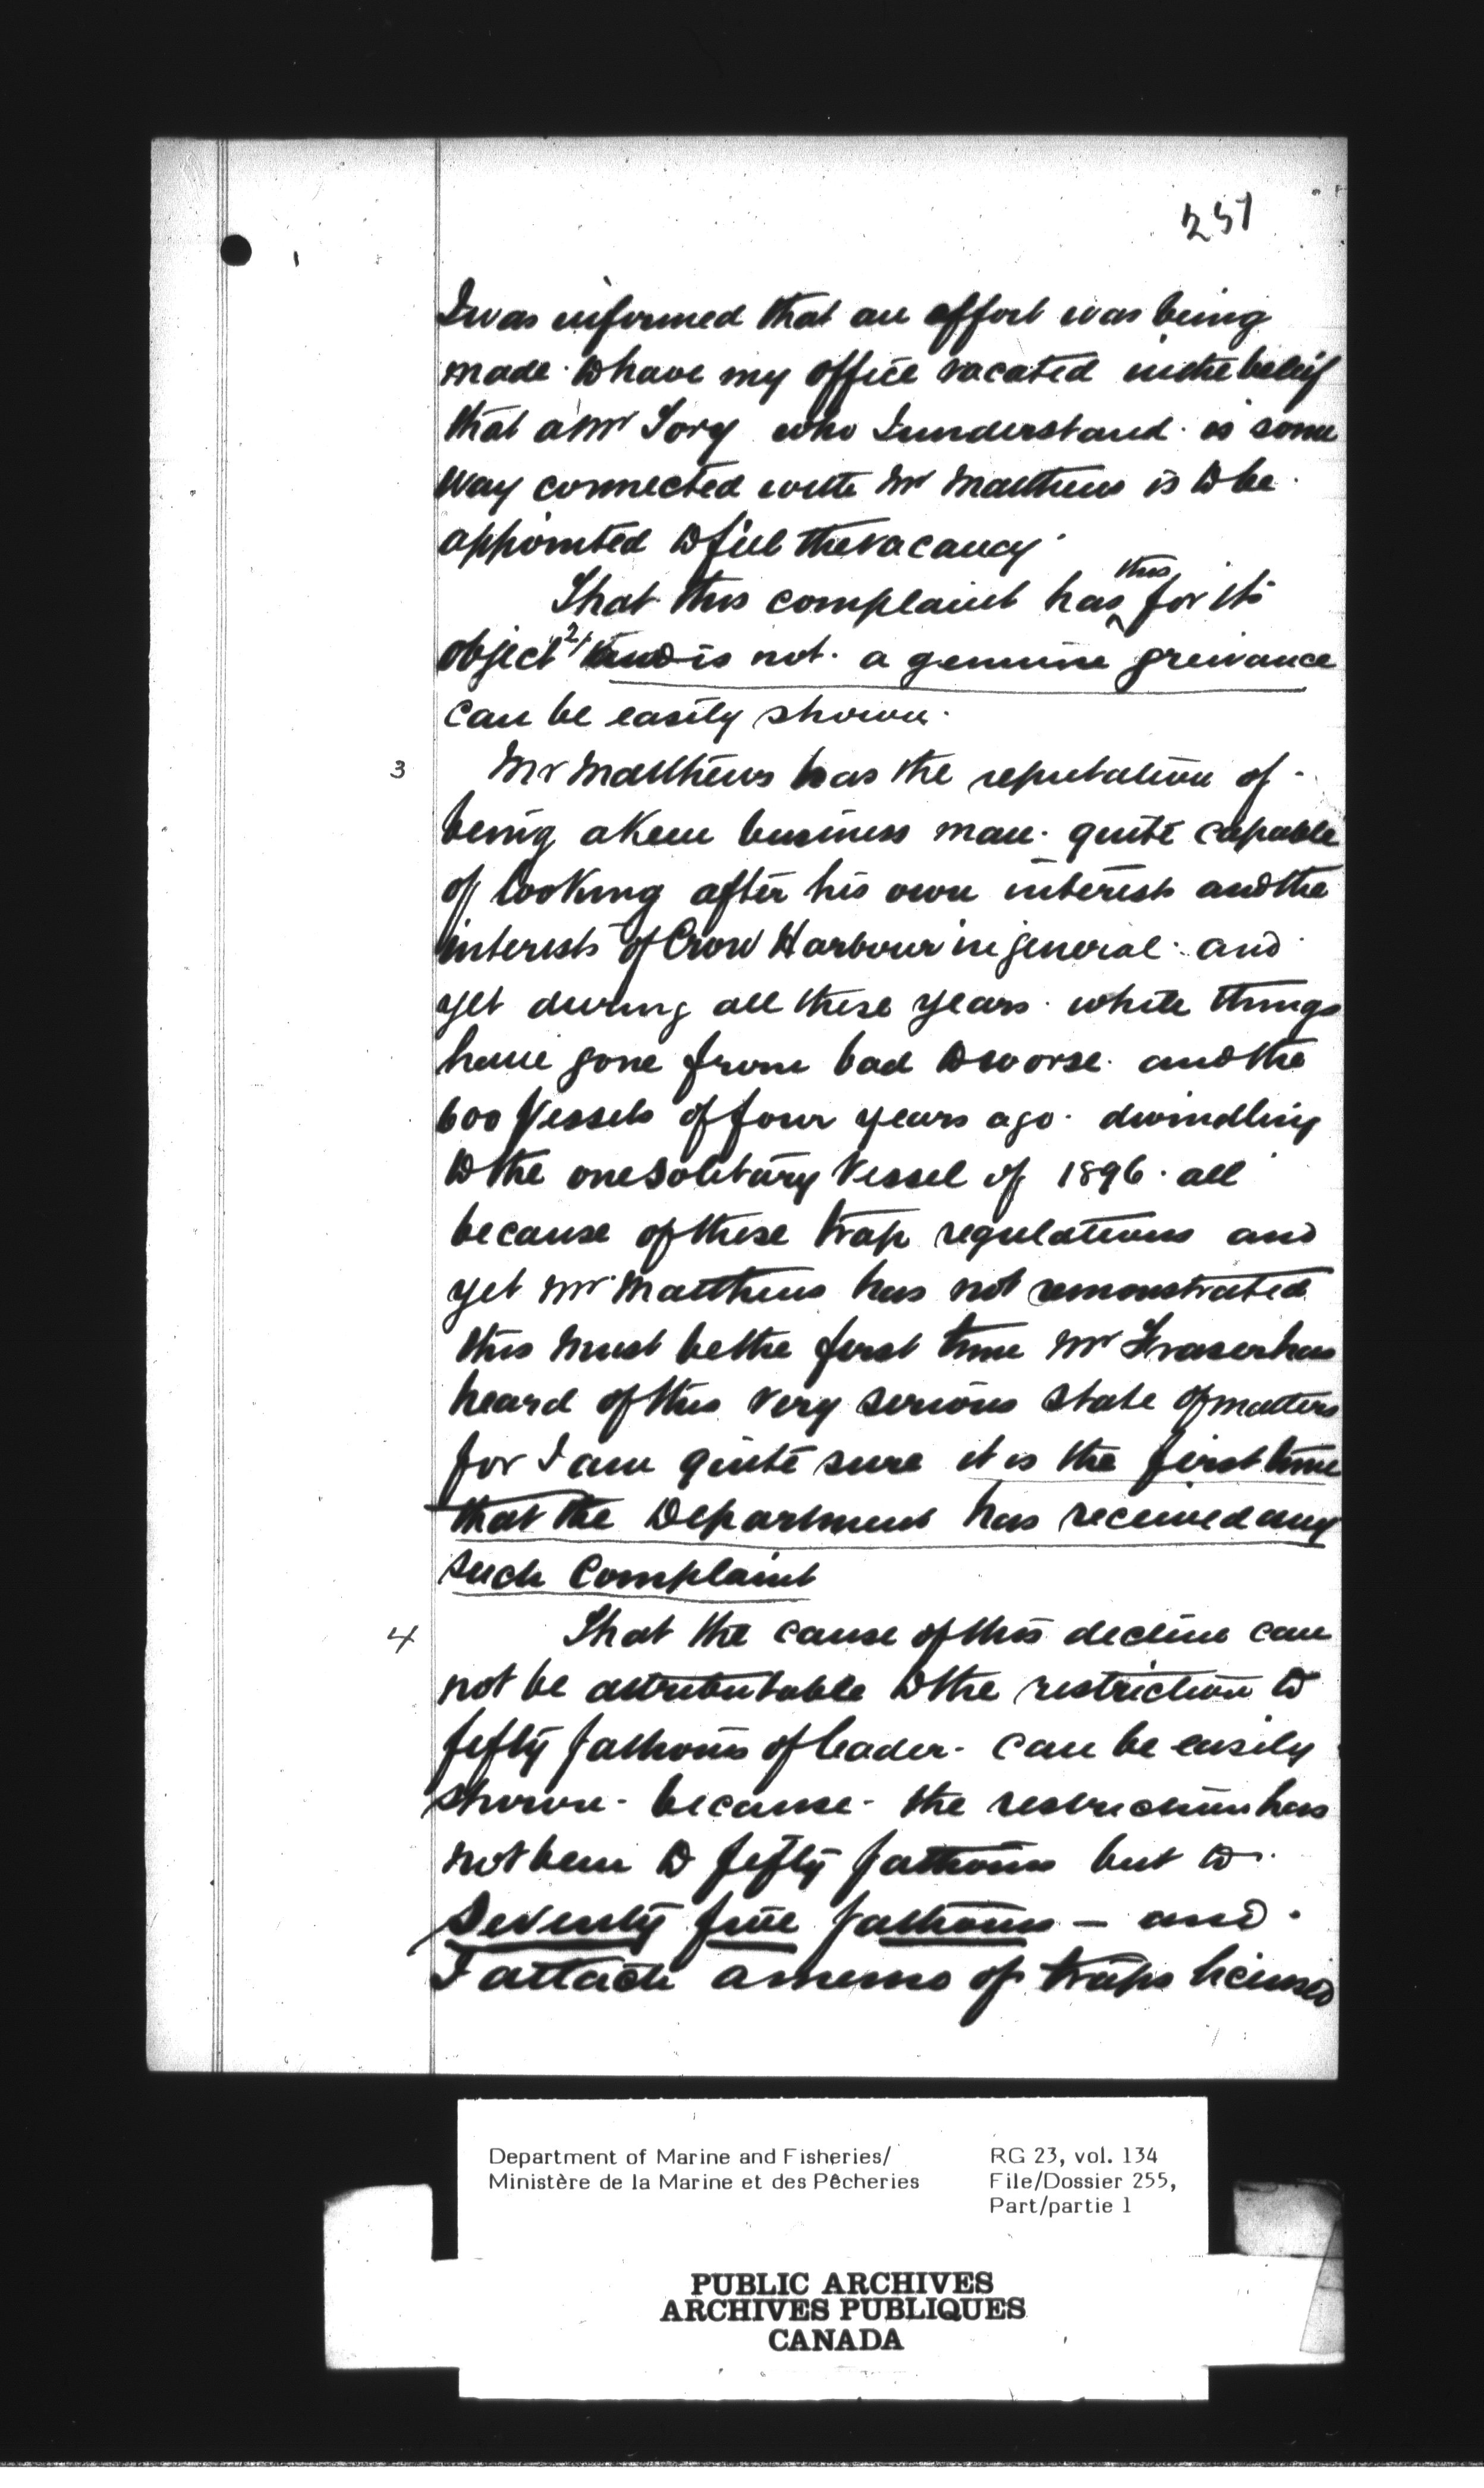 257
I was informed that an effort was being
made to have my office vacated in the belief
that a Mr Tory who I understand is some
way connected with Mr Matthews is to be
appointed to fill the vacancy
this
That this complaint has ^ for its
object 2/ and is not a genuine greivance
can be easily shown.
3 Mr Matthews has the reputation of
being a keen business man quite capable
of looking after his own interests and the
interests of Crow Harbour in general and
yet during all these years while things
have gone from bad to worse and the
600 Vessels of four years ago dwindling
to the one solitary Vessel of 1896 all
because of these trap regulations and
yet Mr Matthews has not remonstrated
this must be the first time Mr Fraser has
heard of this very serious state of matters
for I am quite sure it is the first time
that the Department has received any
such Complaint
4 That the cause of this decline can
not be attributable to the restriction to
fifty fathoms of leader can be easily
shown because the restriction has
not been to fifty fathoms but to
Seventy five fathoms – and
I attach a memo of traps licensed
Department of Marine and Fisheries/ RG 23, vol. 134
Ministère de la Marine et des Pêcheries File/Dossier 255,
Part/partie 1
PUBLIC ARCHIVES
ARCHIVES PUBLIQUES
CANADA